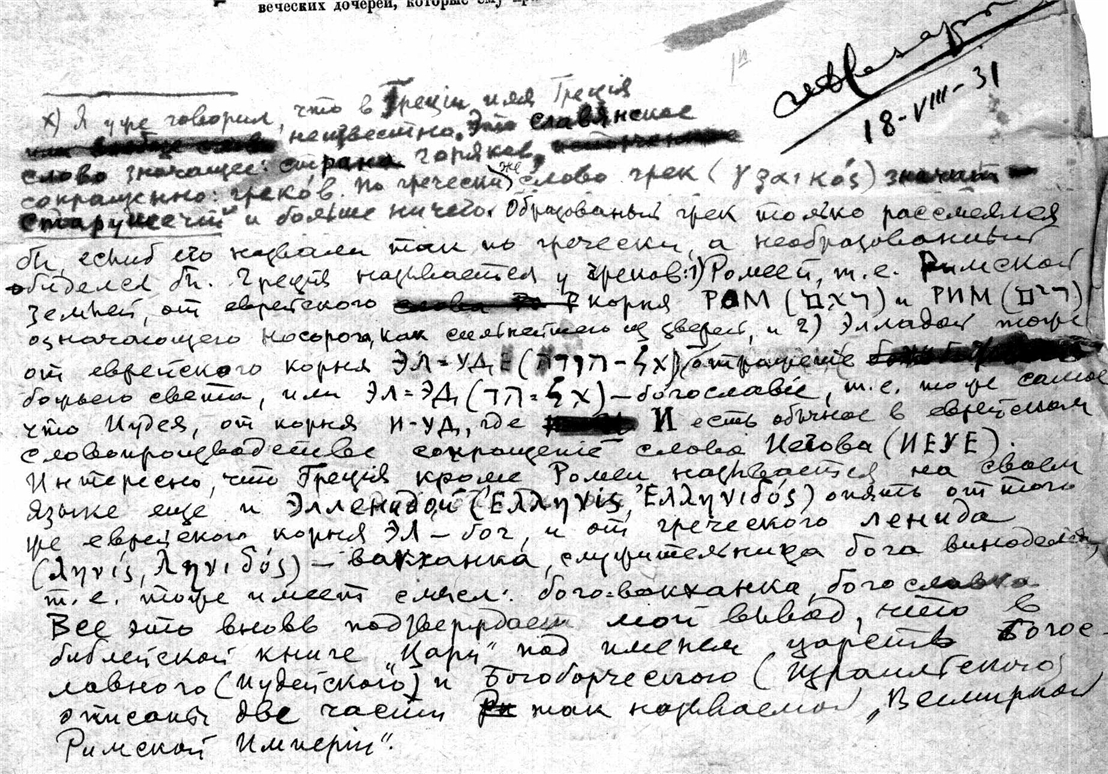 веческих дочерей, которые ему
18-VIII-31
х) Я уже говорил, что в Греціи имя Греція
неизвестно. Это славянское
слово значащее: страна горяков,
сокращенно: греков. По гречески же слово грек (γραικός) значит
"старушечий" и больше ничего. Образованый грек только рассмеялся
бы еслиб его назвали так по гречески, а необразованный
обиделся бы. Греція называется у греков: 1) Ромеей, т.е. Римской
Землей, от еврейского корня РОМ (ראם) и РИМ (רים)
означающего носорога, как сильнейшего из зверей, и 2) Элладой тоже
от еврейского корня ЭЛ=УД отраженіе
божьего света, или ЭЛ=ЭД – богославіе, т.е. тоже самое
что Иудея, от корня И-УД, где И есть обычное в еврейском
словопроизводстве сокращеніе слова Иегова (ИЕУЕ).
Интересно, что Греція кроме Ромеи называется на своем
языке еще и Элленидой (Ἑλληνίς, Ἑλληνιδός) опять от того
же еврейского корня ЭЛ – бог, и от греческого ленида
(ληνίς, ληνιδός) – вакханка, служительница бога виноделия
т.е. тоже имеет смысл: бого-вакханка, богославка
Все это вновь подтверждает мой вывод, что в
библейской книге "Цари" под именем царств Богос-
лавного (Иудейского) и Богоборческого (Израилтского)
описаны две части так называемой "Всемирной
Римской Имперіи".